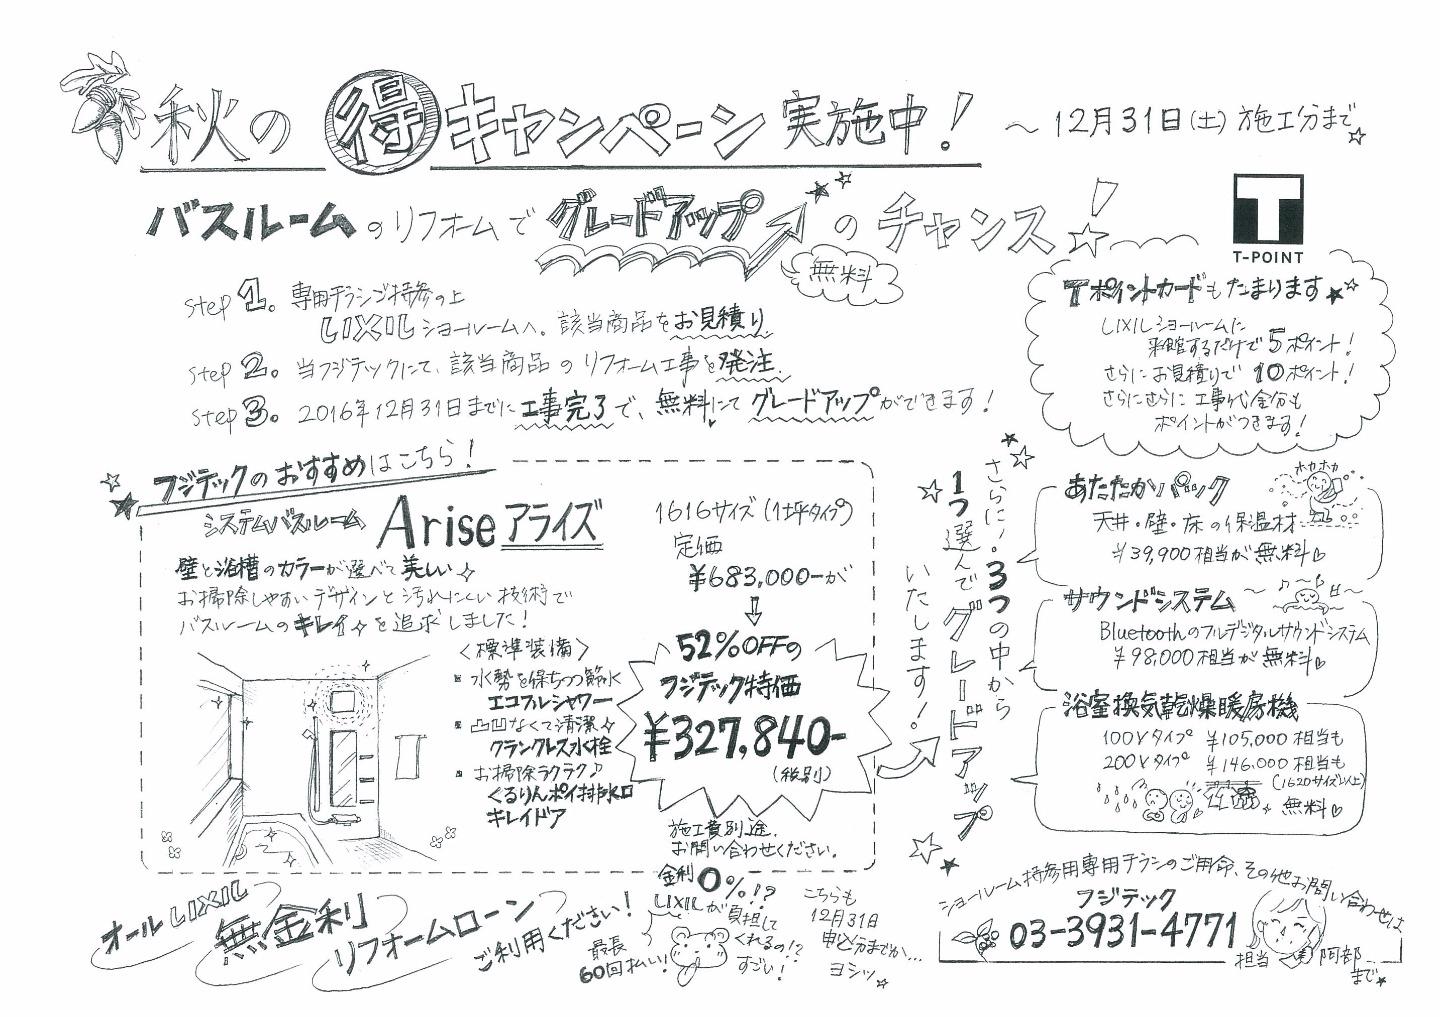 秋の得キャンペーン実施中！
～12月31日(土)施工分まで
バスルームのリフォームでグレードアップのチャンス！
無料
T-POINT
step 1. 専用チラシご持参の上
LIXILショールームへ。該当商品をお見積り
step 2. 当フジテックにて、該当商品のリフォーム工事を発注.
step 3. 2016年12月31日までに工事完了で、無料にてグレードアップができます！
Tポイントカードもたまります
LIXILショールームに
来館するだけで5ポイント！
さらにお見積りで10ポイント！
さらにさらに工事代金分も
ポイントがつきます！
フジテックのおすすめはこちら！
システムバスルーム Arise アライズ
壁と浴槽のカラーが選べて美しい
お掃除しやすいデザインと汚れにくい技術で
バスルームのキレイを追求しました！
<標準装備>
水勢を保ちつつ節水
エコフルシャワー
凸凹なくて清潔
クランクレス水栓
お掃除ラクラク♪
くるりんポイ排水口
キレイドア
1616サイズ(1坪タイプ)
定価
¥683,000-が
52%OFFの
フジテック特価
¥327,840-
(税別)
施工費別途.
お問い合わせください.
さらに！3つの中から
1つ選んでグレードアップ
いたします！
あたたかパック
ホカホカ
天井・壁・床の保温材
¥39,900相当が無料♡
サウンドシステム
Bluetoothのフルデジタルサウンドシステム
¥98,000相当が無料♡
浴室換気乾燥暖房機
100Vタイプ ¥105,000相当も
200Vタイプ ¥146,000相当も
(1620サイズ以上)
無料♡
オールLIXIL
無金利
リフォームローン
ご利用ください！
金利0%!?
LIXILが負担して
くれるの!?
すごい！
最長
60回払い！
こちらも
12月31日
申込分までか…
ヨシッ
ショールーム持参用専用チラシのご用命、その他お問い合わせは
フジテック
03-3931-4771
担当 阿部
まで